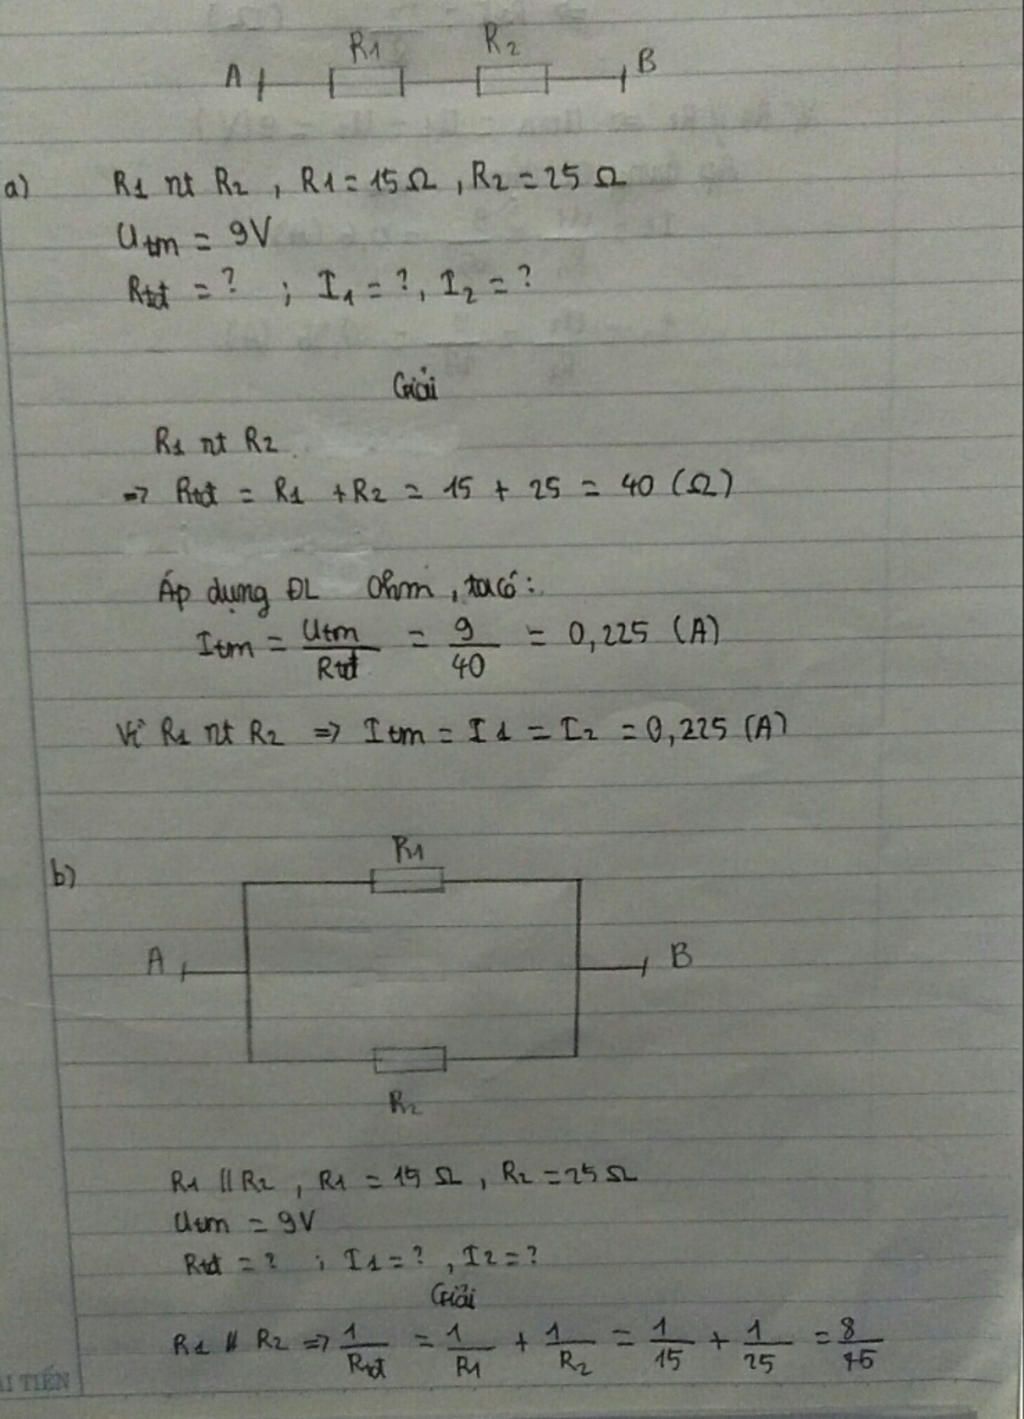 R1 R2
A B
a) R1 nt R2 , R1 = 15Ω , R2 = 25Ω
Utm = 9V
Rtđ = ? ; I1 = ? , I2 = ?
Giải
R1 nt R2
=> Rtđ = R1 + R2 = 15 + 25 = 40 (Ω)
Áp dụng ĐL Ohm , ta có :
Itm = Utm/Rtđ = 9/40 = 0,225 (A)
Vì R1 nt R2 => Itm = I1 = I2 = 0,225 (A)
b) R1
A B
R2
R1 // R2 , R1 = 15Ω , R2 = 25Ω
Utm = 9V
Rtđ = ? ; I1 = ? , I2 = ?
Giải
R1 // R2 => 1/Rtđ = 1/R1 + 1/R2 = 1/15 + 1/25 = 8/75
TIẾN